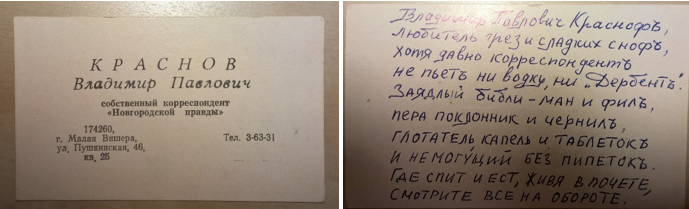 КРАСНОВ
Владимир Павлович
собственный корреспондент
«Новгородской правды»
174260,
г. Малая Вишера,
ул. Пушкинская, 46,
кв. 25
Тел. 3-63-31
Владимир Павлович Краснофъ,
любитель грез и сладких снофъ,
хотя давно корреспондентъ
не пьетъ ни водку, ни „Дербентъ".
Заядлый библи-ман и филъ,
пера поклонник и чернилъ,
глотатель капель и таблетокъ
и немогущий без пипетокъ.
Где спит и ест, живя в почете,
смотрите все на обороте.